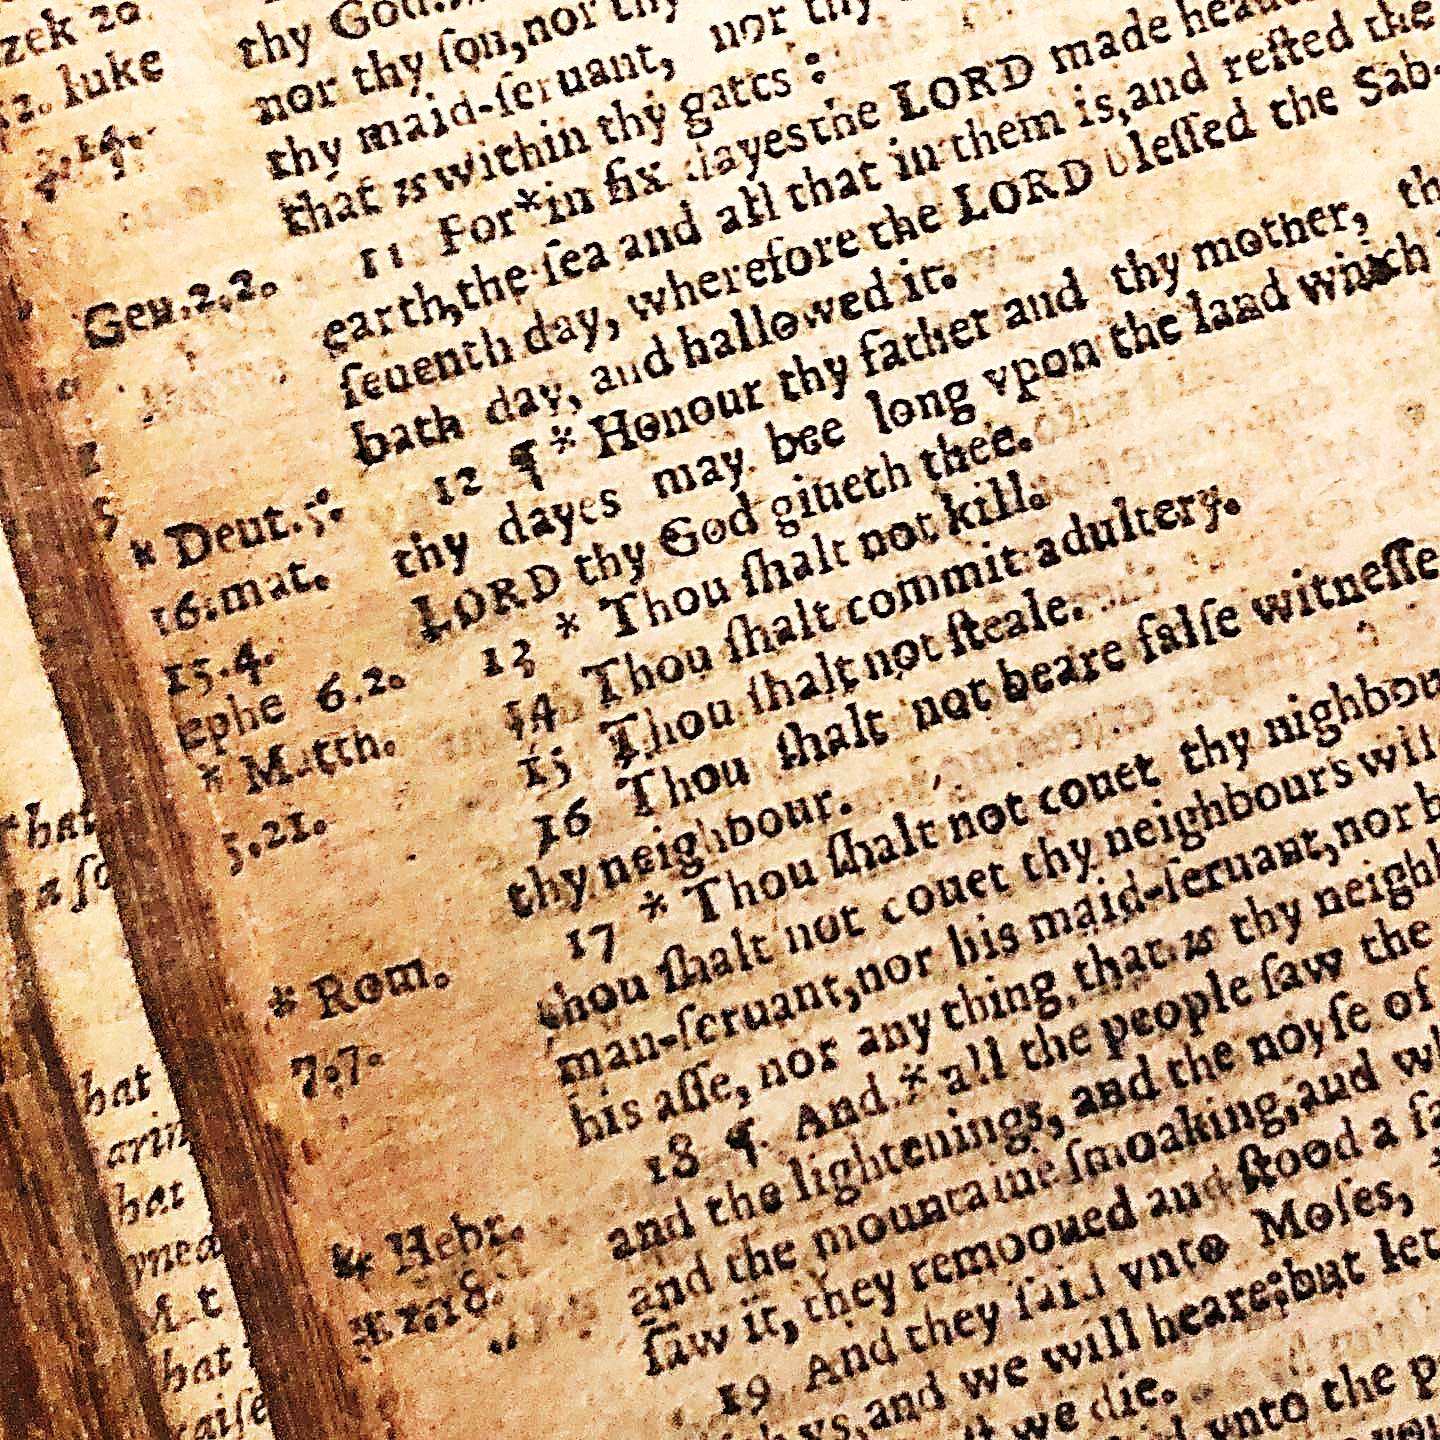 zek 20
12. luke
thy God.
nor thy ſon, nor thy
thy maid-ſeruant, nor thy
that is within thy gates :
11 For * in ſix dayes the LORD made heauen
Gen.2.2.
earth, the ſea and all that in them is, and reſted the
ſeuenth day, wherefore the LORD bleſſed the Sab-
bath day, and hallowed it.
12 ¶ * Honour thy father and thy mother, th
* Deut.5.
thy dayes may bee long vpon the land which
16. mat.
LORD thy God giueth thee.
15.4.
13 * Thou ſhalt not kill.
ephe 6.2.
14 Thou ſhalt commit adultery.
* Matth.
15 Thou ſhalt not ſteale.
5.21.
16 Thou ſhalt not beare falſe witneſſe
thy neighbour.
17 * Thou ſhalt not couet thy nighbou
* Rom.
thou ſhalt not couet thy neighbours wife
7.7.
man-ſeruant, nor his maid-ſeruant, nor
his aſſe, nor any thing, that is thy neigh
18 ¶ And * all the people ſaw the
and the lightenings, and the noyſe of
* Hebr.
and the mountaine ſmoaking, and
12.18.
ſaw it, they remooued and ſtood a
19 And they ſaid vnto Moſes,
vs, and we will heare: but let
we die.
vnto the
hat
hat
hat
hat